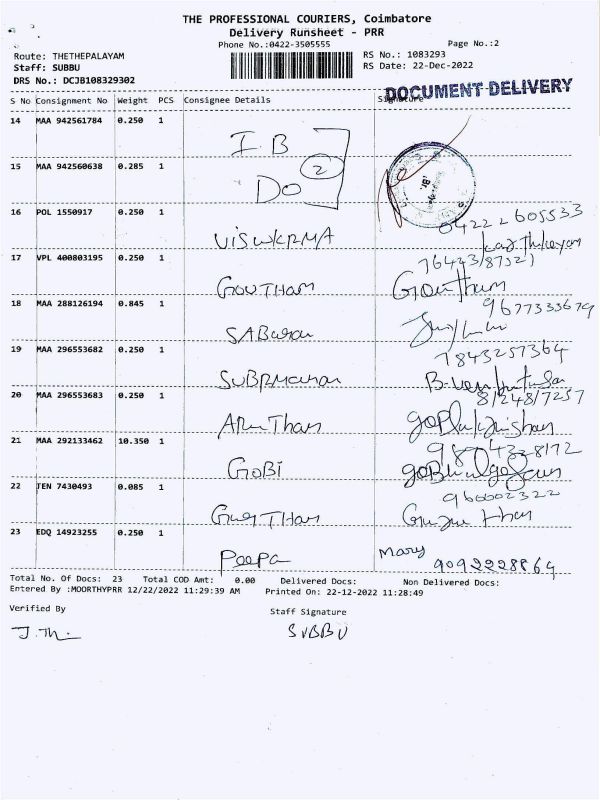 THE PROFESSIONAL COURIERS, Coimbatore
Delivery Runsheet - PRR
Phone No.:0422-3505555
Page No.:2
Route: THETHEPALAYAM
RS No.: 1083293
Staff: SUBBU
RS Date: 22-Dec-2022
DRS No.: DCJB108329302
DOCUMENT DELIVERY
S No Consignment No Weight PCS Consignee Details Signature
14 MAA 942561784 0.250 1
I B
15 MAA 942560638 0.285 1
2
DO
16 POL 1550917 0.250 1
04222605533
VISWKRMA
17 VPL 400803195 0.250 1
GOUTHAM Goutham
9677333679
18 MAA 288126194 0.845 1
SABARAN
7843257364
19 MAA 296553682 0.250 1
20 MAA 296553683 0.250 1
21 MAA 292133462 10.350 1
GOBI
22 TEN 7430493 0.085 1
23 EDQ 14923255 0.250 1
Mary
PEEPA 9092228864
Total No. Of Docs: 23 Total COD Amt: 0.00 Delivered Docs: Non Delivered Docs:
Entered By :MOORTHYPRR 12/22/2022 11:29:39 AM Printed On: 22-12-2022 11:28:49
Verified By Staff Signature
SUBBU